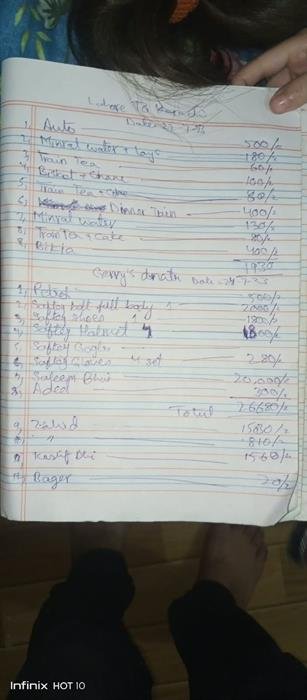 Lahore To Karachi
Date 27-7-23
1, Auto 500/-
2, Minral water + Lays 180/-
3, Train Tea 60/-
4, Bisket + 100/-
5, Train Tea + Cake 80/-
6, Dinner Train 400/-
7, Minral water 130/-
8, Train Tea + Cake 80/-
8, 400/-
1930
Gerry's Date 7-23
1, Petrol 500/-
2, Saftey full body 1 2000/-
3, Saftey Shoes 1 1800/-
4, Saftey Halmet 4 1800/-
5, Saftey Gogls
6, Saftey Gloves 4 set 280/-
7, Saleem Bhai 20,000/-
8, 300/-
Total 26680/-
9, Zahid
" 1810/-
Kashif Bhi 1560/-
20/-
Infinix HOT 10